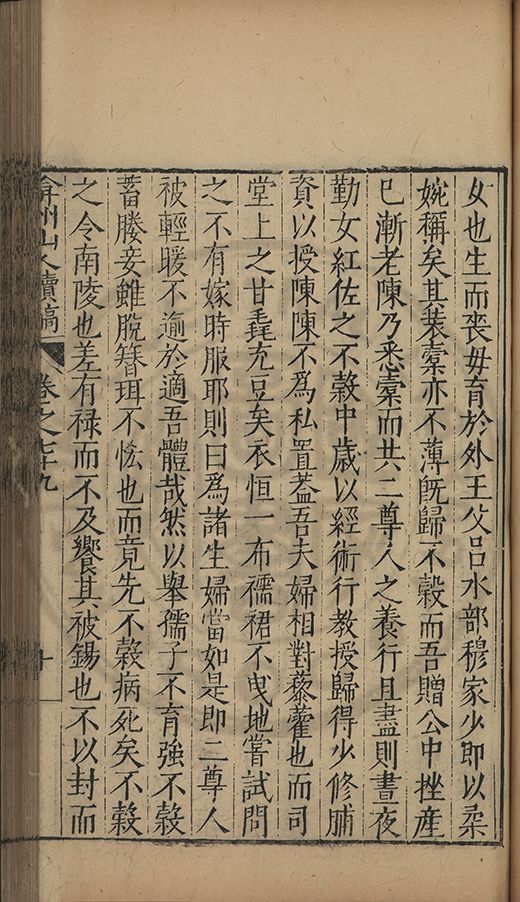 女也生而喪毋育於外王父呂水部穆家少即以柔
婉稱矣其裝槖亦不薄旣歸不穀而吾贈公中挫産
已漸老陳乃悉槖而共二尊人之養行且盡則晝夜
勤女紅佐之不穀中歲以經術行教授歸得少修脯
資以授陳陳不爲私置葢吾夫婦相對藜藿也而司
堂上之甘毳充豆矣衣恒一布襦裙不曵地嘗試問
之不有嫁時服耶則曰爲諸生婦當如是即二尊人
被輕暖不逾於適吾體哉然以舉孺子不育強不穀
蓄媵妾雖脫簪珥不恡也而竟先不穀病死矣不穀
之令南陵也差有禄而不及饗其被錫也不以封而
弇州山人續稿 卷之七十九 十